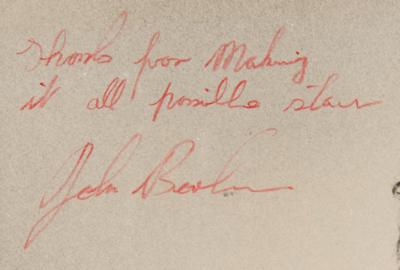 Thanks for Making
it all possible Stan
John Bonham